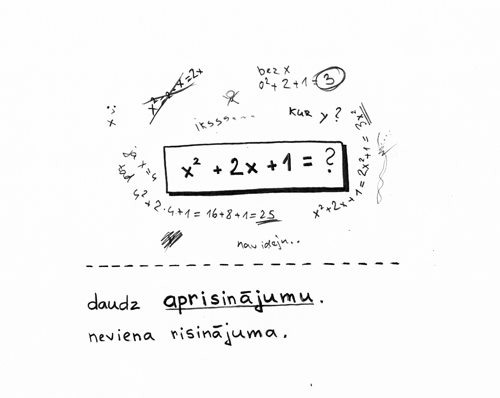 bez x
0² + 2 + 1 = 3
x² = 2x
iksss....
kur y ?
x
x = 4
4² + 2 · 4 + 1 = 16 + 8 + 1 = 25
x² + 2x + 1 = ?
x² + 2x + 1 = 2x² + 1 = 3x²
nav ideju..
daudz aprisinājumu.
neviena risinājuma.